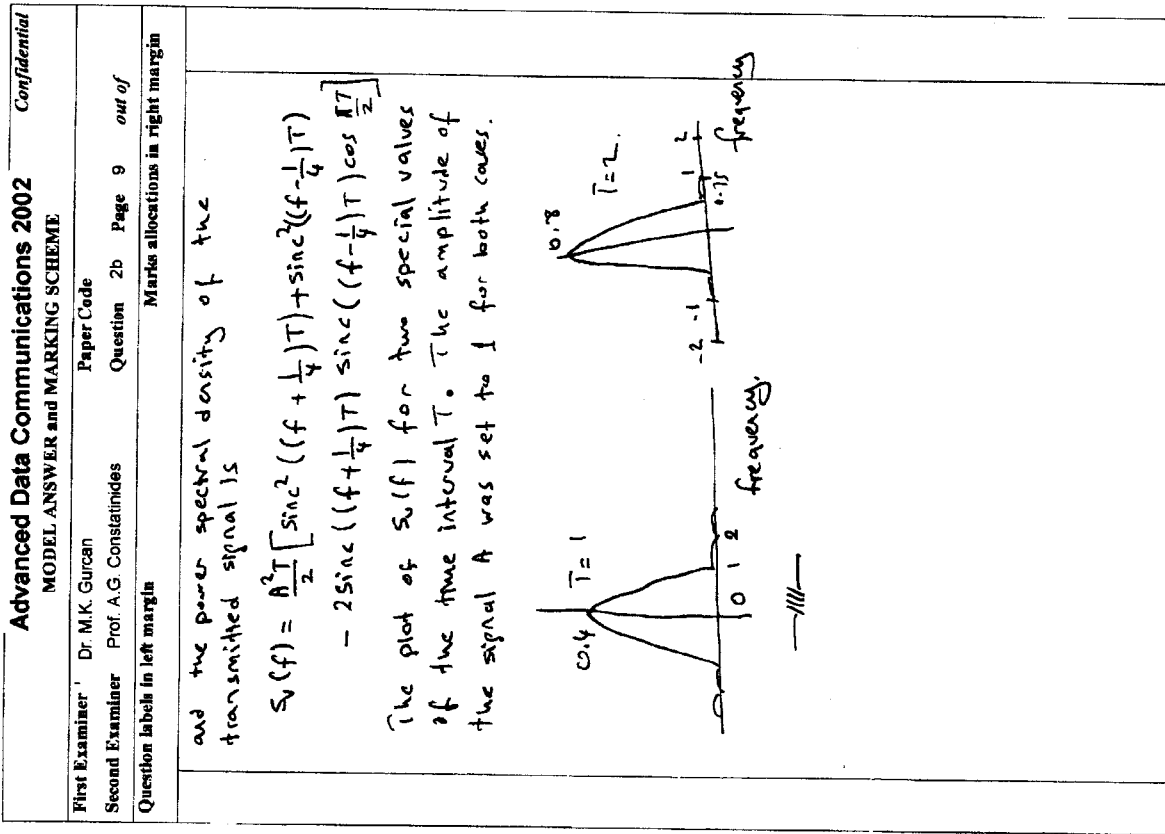 Advanced Data Communications 2002 Confidential
MODEL ANSWER and MARKING SCHEME
First Examiner ' Dr. M.K. Gurcan Paper Code
Second Examiner Prof. A.G. Constatinides Question 2b Page 9 out of
Question labels in left margin Marks allocations in right margin
and the power spectral density of the
transmitted signal is
Sᵥ(f) = A²T/2 [ sinc² ((f + 1/4)T) + sinc²((f - 1/4)T)
- 2 sinc ((f + 1/4)T) sinc ((f - 1/4)T) cos πT/2 ]
The plot of Sᵥ(f) for two special values
of the time interval T. The amplitude of
the signal A was set to 1 for both cases.
0.4 T=1
0 1 2
frequency.
0.8 T=2.
-2 -1 0.75 1 2
frequency